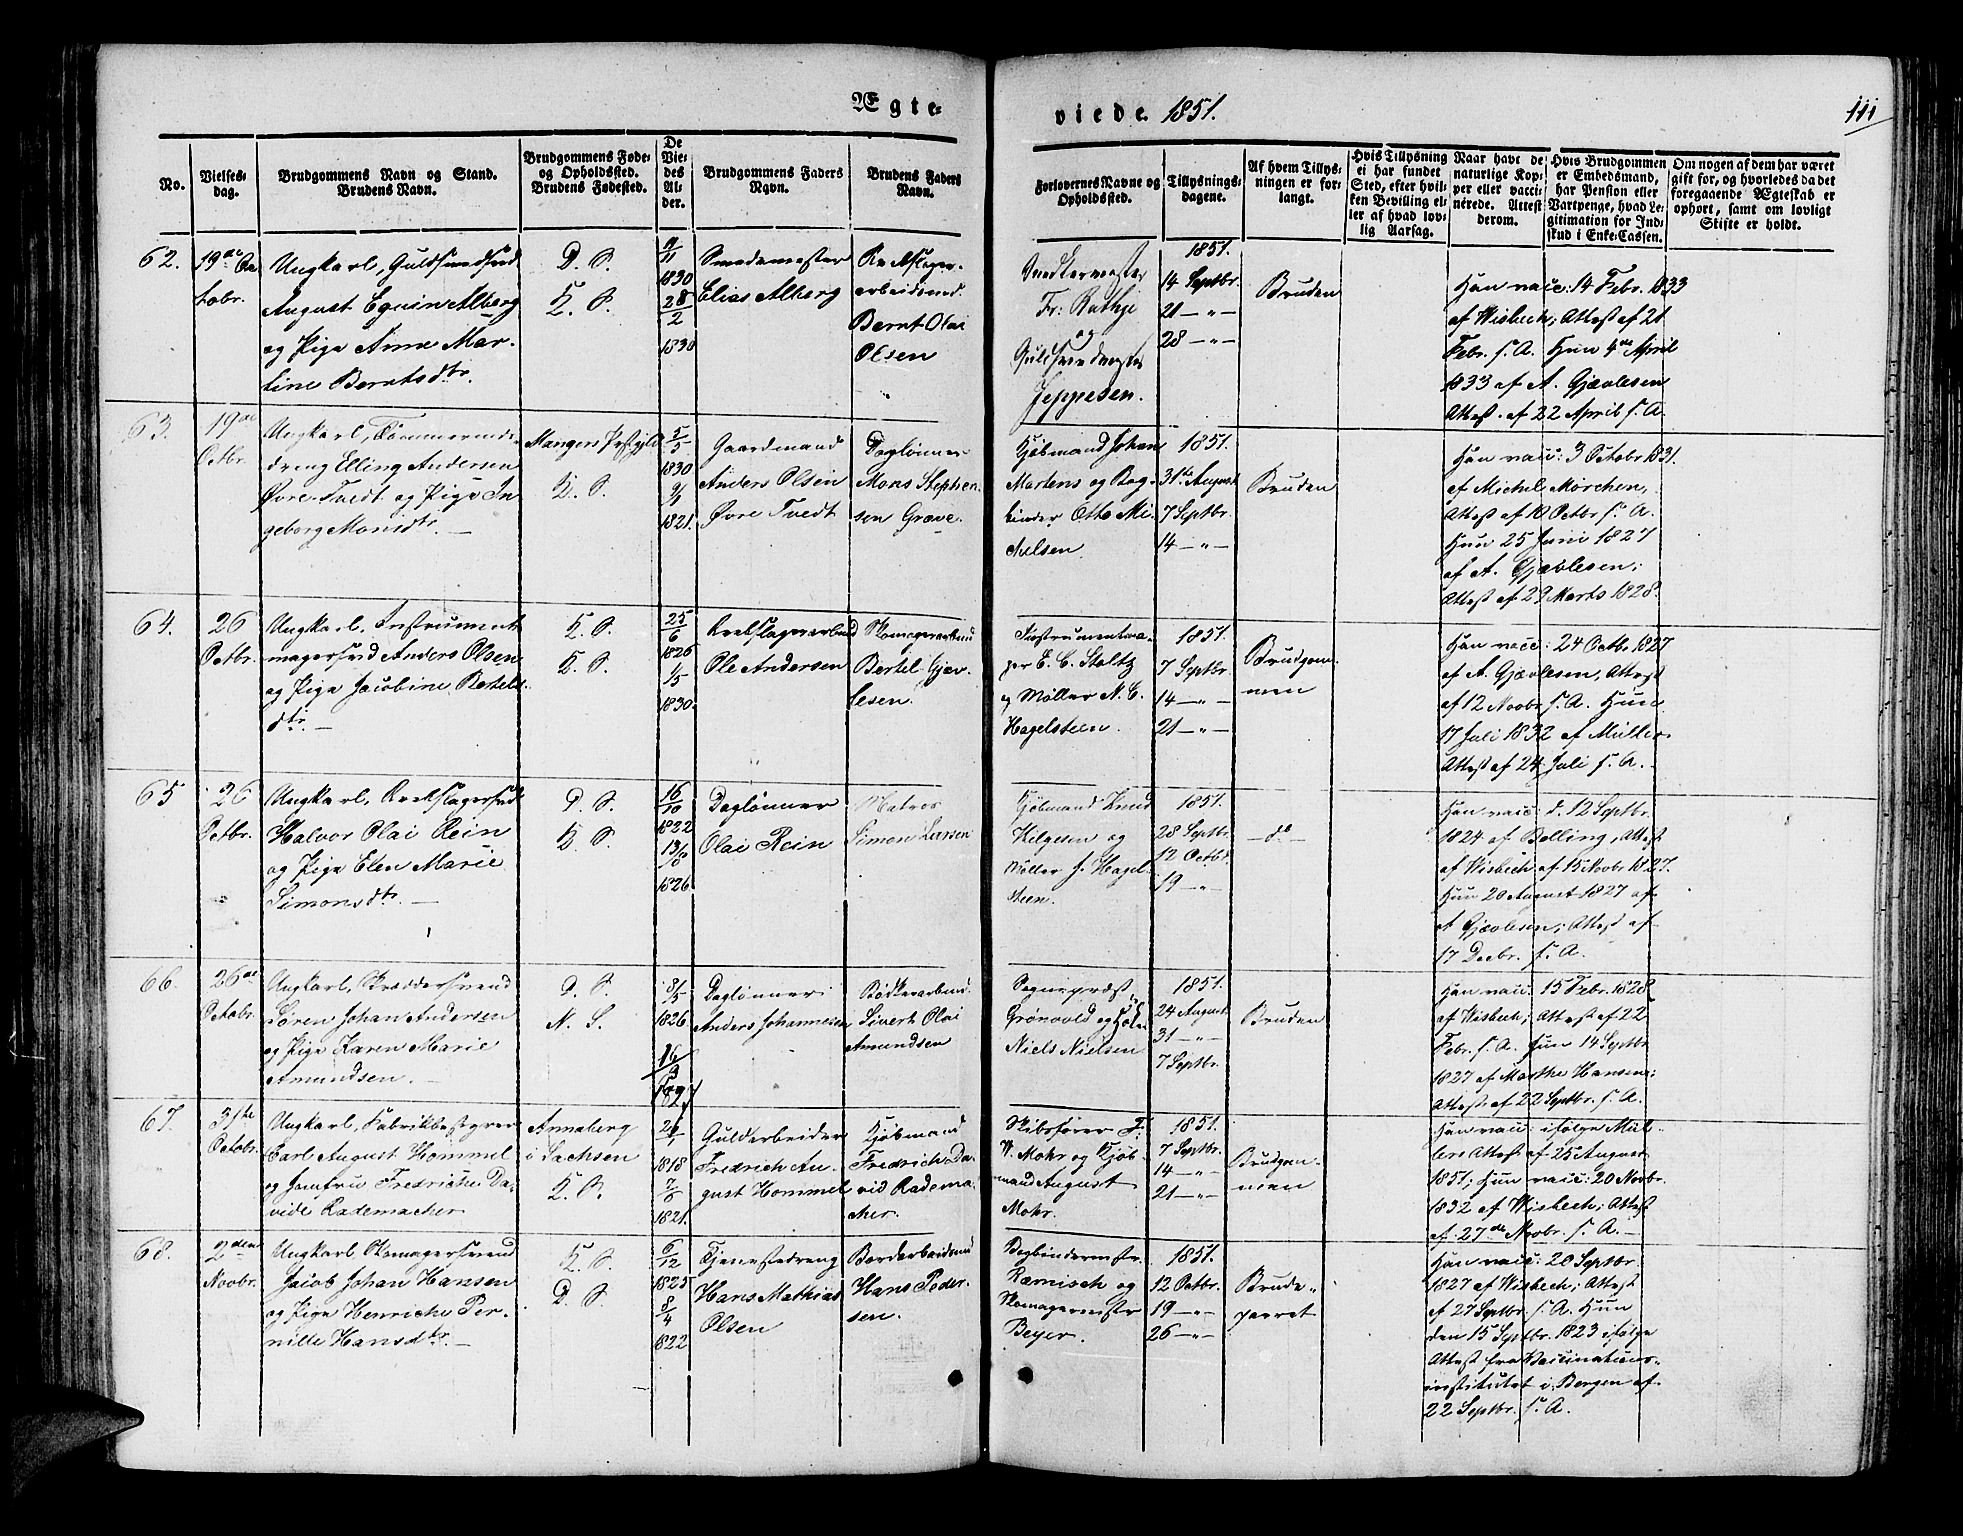 Ægte-
viede. 1851.
111
No.
Vielses-
dag.
Brudgommens Navn og Stand.
Brudens Navn.
Brudgommens Føde-
og Opholdssted.
Brudens Fødested.
De
Vie-
des
Al-
der.
Brudgommens Faders
Navn.
Brudens Faders
Navn.
Forlovernes Navne og
Opholdssted.
Tillysnings-
dagene.
Af hvem Tillys-
ningen er for-
langt.
Hvis Tillysning
ei har fundet
Sted, efter hvil-
ken Bevilling el-
ler af hvad lov-
lig Aarsag.
Naar havt de
naturlige Kop-
per eller vacci-
nérede. Attest
derom.
Hvis Brudgommen
er Embedsmand,
har Pension eller
Vartpenge, hvad Le-
gitimation for Ind-
skud i Enke-Cassen.
Om nogen af dem har været
gift før, og hvorledes da det
foregaaende Ægteskab er
ophørt, samt om lovligt
Skifte er holdt.
62.
19de Oc-
tobr.
Ungkarl, Guldsmedsvd
August Eguin Alberg
og Pige Anne Mar-
tine Berntsdtr.
D. S.
K. S.
1830
28/2
1830
Smedemester
Elias Alberg
Rebslager-
arbeidsmd.
Bernt Olai
Olsen
Snedkermester
Fr: Rathje
og
Guldsmedmester
Jeppesen.
1851.
14 Septbr.
21 — " —
28 — " —
Bruden
Han vacc: 14 Febr. 1833
af Wisbech; Attest af 21
Febr. s. A. Hun 4de April
1833 af A. Gjævlesen
Attest. af 22 April s. A.
63.
19de
Octbr.
Ungkarl, Tømmermds-
dreng Elling Andersen
Øvre-Tvedt og Pige In-
geborg Monsdtr. —
Mangers Præstgjeld
K. S.
5/5
1830
1821.
Gaardmand
Anders Olsen
Øvre Tvedt
Daglønner
Mons Stephen-
sen Grave.
Kjøbmand Johan
Martens og Bog-
binder Otto Mi-
chelsen
1851.
31te August
7 Septbr.
14 — " —
Bruden
Han vacc: 3 Octobr 1831.
af Michel Mörchen,
Attest af 10 Octbr. s. A.
Hun 25 Juni 1827
af A. Gjævlesen;
Attest af 29 Marts 1828.
64.
26
Octbr.
Ungkarl, Instrument-
magersvd Anders Olsen
og Pige Jacobine Bertels-
dtr. —
K. S.
K. S.
25/6
1826
1/5
1830.
Rebslagerarbmd
Ole Andersen
Skomagerarbmd
Bertel Gjæv-
lesen.
Instrumentma-
ger E. C. Stoltz
og Møller N. C.
Hagelsteen.
1851.
7 Septbr
14 — " —
21 — " —
Brudgom-
men
Han vacc: 24 Octbr. 1827
af A. Gjævlesen, Attest
af 12 Novbr s. A. Hun
17 Juli 1832 af Müller
Attest af 24 Juli s. A. —
65
26
Octbr.
Ungkarl, Rebslagersvd
Halvor Olai Rein
og Pige Elen Marie
Simonsdtr. —
D. S.
K. S.
16/10
1822
13/8
1826
Daglønner
Olai Rein
Matros
Simon Larsen
Kjøbmand Knud
Helgesen og
Møller J. Hagel-
steen.
1851.
28 Septbr.
12 Octbr.
19 — " —
— do —
Han vacc: d. 12 Septbr.
1824 af Bolling, Attest
af Wisbech af 15 Novbr 1827.
Hun 20 August 1827 af
A Gjævlesen; Attest af
17 Decbr. s. A.
66.
26de
Octobr.
Ungkarl, Skræddersvend
Søren Johan Andersen
og Pige Karen Marie
Amundsen. —
D. S.
N. S.
8/5
1826
16/3
1827
Daglønner
Anders Johannesen
Bødkerarbmd.
Sivert Olai
Amundsen
Sognepræst
Grønvold og
Niels Nielsen
1851.
24 August
31 — " —
7 Septbr.
Bruden
Han vacc: 15 Febr. 1828
af Wisbech; Attest af 22
Febr. s. A. Hun 14 Septbr
1827 af Marthe Hansen;
Attest. af 22 Septbr. s. A.
67.
31te
Octobr.
Ungkarl, Fabrikbestyrer
Carl August Hommel
og Jomfru Fredriche Da-
vide Rademacher
Annaberg
i Sachsen
K. S.
1818
1821.
Guldarbeider
Fredrich Au-
gust Hommel
Kjøbmand
Fredrich Da-
vid Radema-
cher.
Skibsfører F.
W. Mohr og Kjøb-
mand August
Mohr.
1851.
7 Septbr.
14 — " —
21 — " —
Brudgom-
men
Han vacc: ifølge Mül-
lers Attest af 25 August
1851; Hun vacc: 20 Novbr.
1832 af Wisbech; Attest
af 27de Novbr. s. A. —
68.
2den
Novbr.
Ungkarl Skomagersvend
Jacob Johan Hansen
og Pige Henriche Per-
nille Hansdtr. —
K. S.
D. S.
6/12
1825
8/4
1822
Tjenestedreng
Hans Mathias
Olsen
Borderbeidsmd
Hans Peder-
sen.
Bogbindermstr.
Ræmisch og
Skomagermstr
Beyer.
1851.
12 Octbr.
19 — " —
26 — " —
Brude-
parret
Han vacc: 20 Septbr.
1827 af Wisbech; Attest
af 27 Septbr. s. A. Hun
den 15 Septbr. 1823 ifølge
Attest fra Vaccinations-
institutet i Bergen af
22 Septbr. s. A.